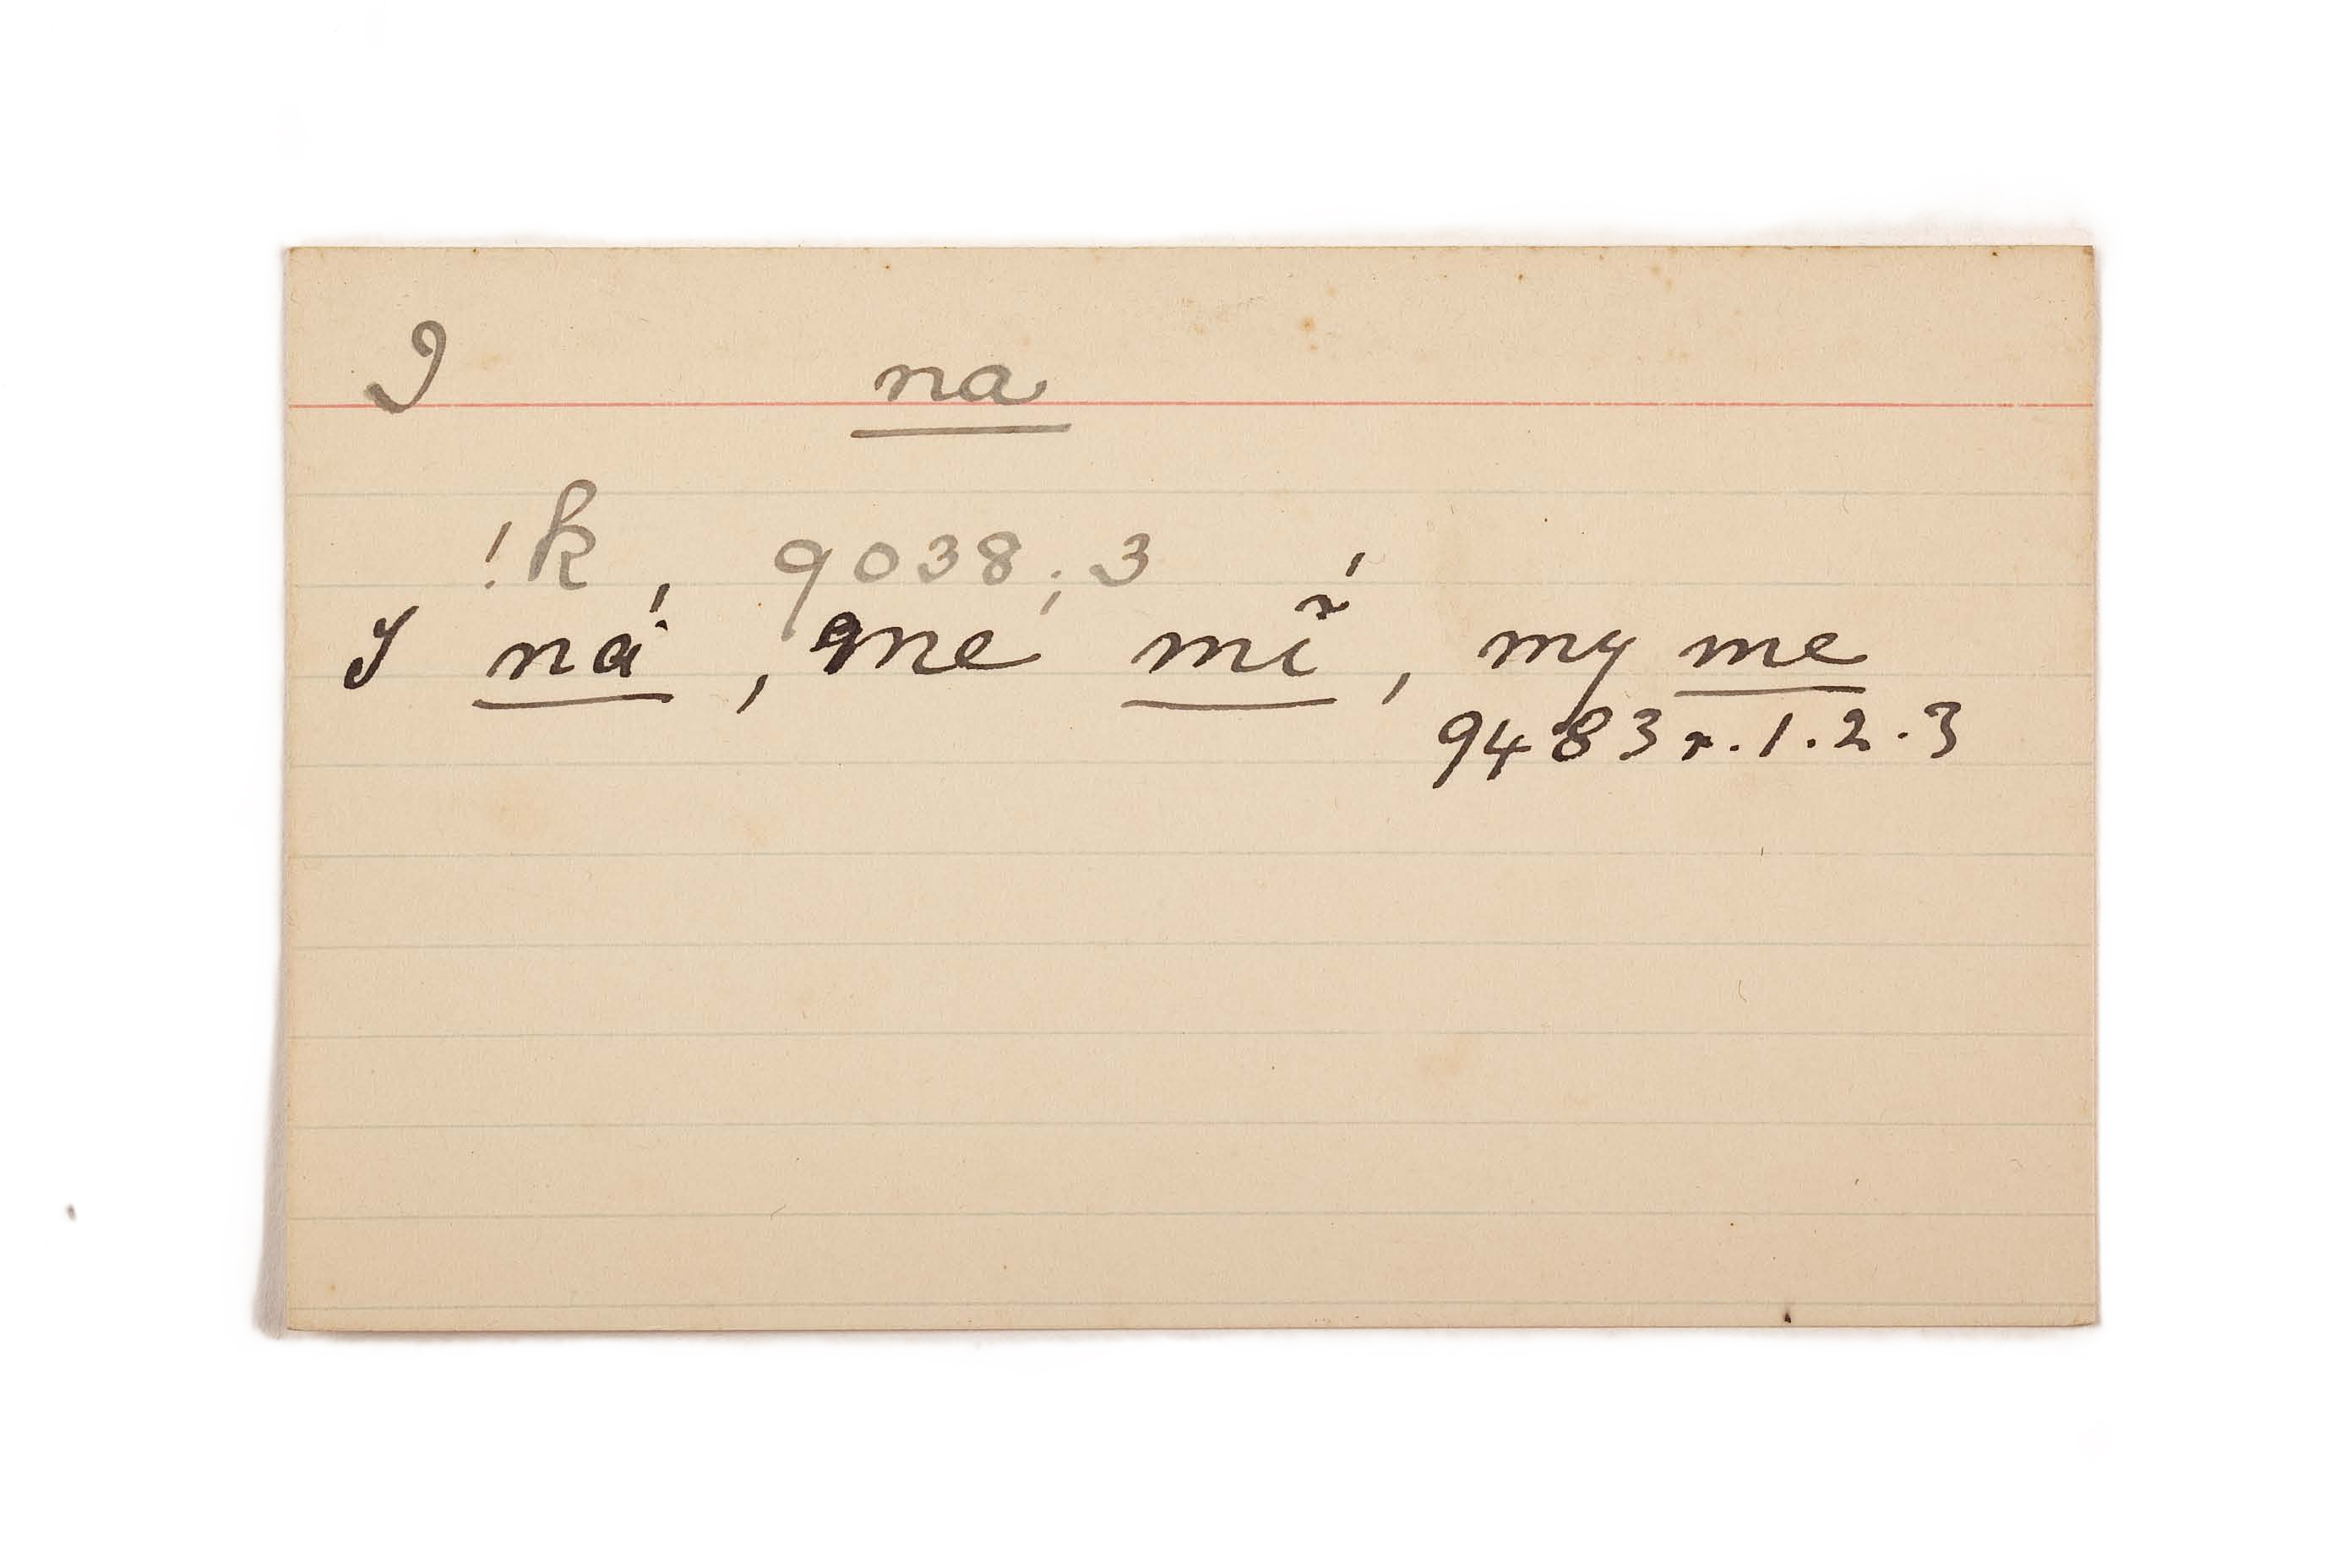 I na
!k, 9038; 3
I ná, me mı̃́, my me
9483 r. 1. 2. 3